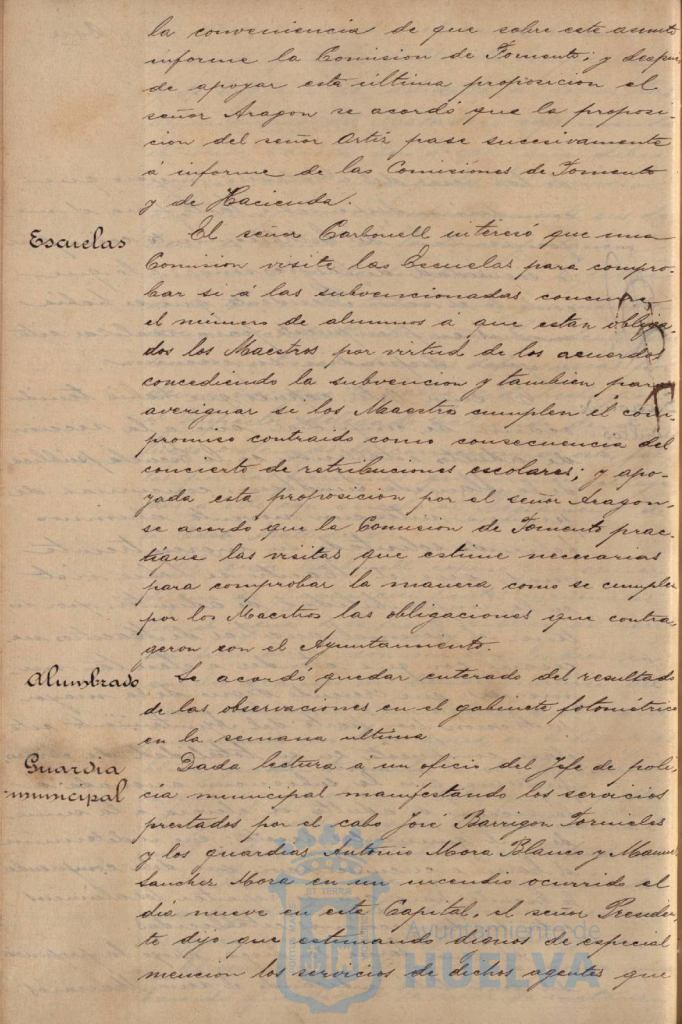 la conveniencia de que sobre este asunto
informe la Comision de Fomento; y despues
de apoyar esta última proposicion el
señor Aragon se acordó que la proposi-
cion del señor Ortiz pase sucesivamente
á informe de las Comisiones de Fomento
y de Hacienda.
Escuelas
El señor Carbonell interesó que una
Comision visite las Escuelas para compro-
bar si á las subvencionadas concurre
el número de alumnos á que estan obliga-
dos los Maestros por virtud de los acuerdos
concediendo la subvencion y tambien para
averiguar si los Maestros cumplen el com-
promiso contraido como consecuencia del
concierto de retribuciones escolares; y apo-
yada esta proposicion por el señor Aragon,
se acordó que la Comision de Fomento prac-
tique las visitas que estime necesarias
para comprobar la manera como se cumplen
por los Maestros las obligaciones que contra-
geron con el Ayuntamiento.
Alumbrado
Se acordó quedar enterado del resultado
de las observaciones en el gabinete fotométrico
en la semana última
Guardia
municipal
Dada lectura á un oficio del Jefe de poli-
cía municipal manifestando los servicios
prestados por el cabo José Barrigon Fornieles
y los guardias Antonio Mora Blanco y Manuel
Sanchez Mora en un incendio ocurrido el
dia nueve en esta Capital, el señor Presiden-
te dijo que estimando dignos de especial
mencion los servicios de dichos agentes que
Ayuntamiento de
HUELVA